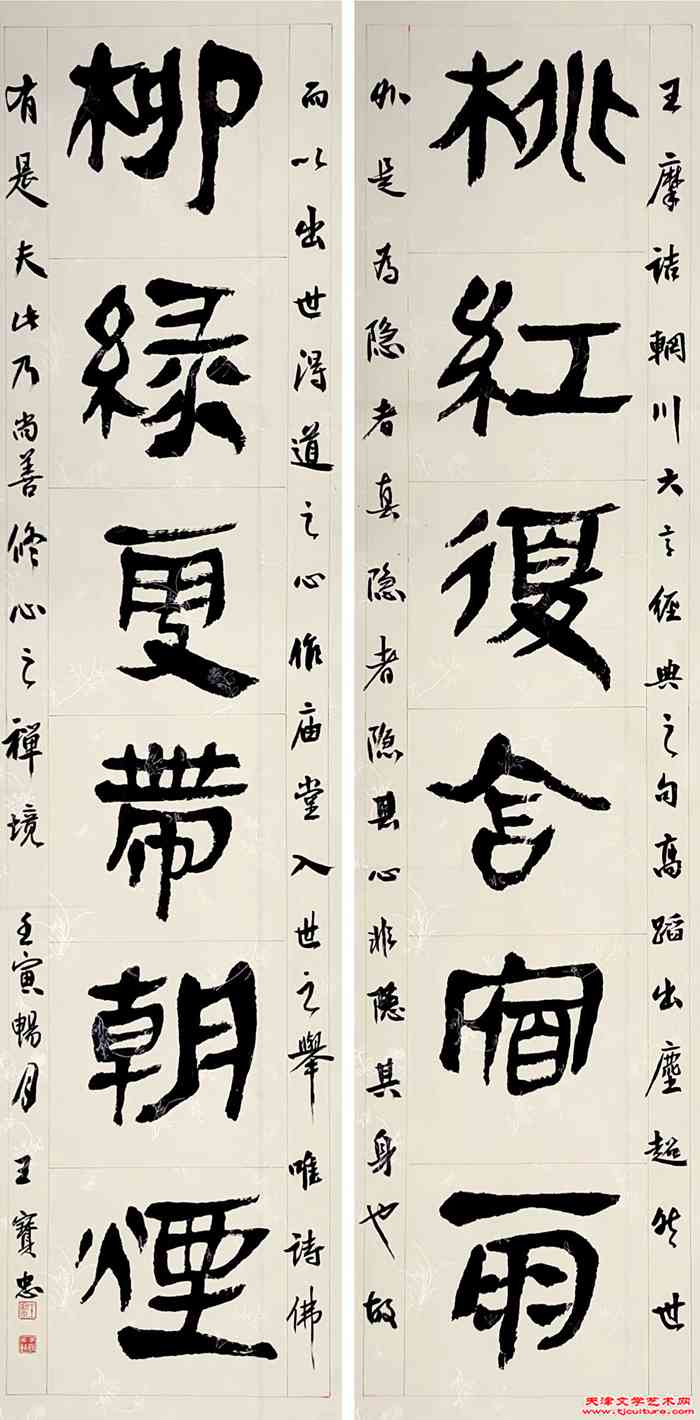 桃紅復含宿雨
王摩诘輞川六言经典之句高蹈出塵超然世
外是为隐者真隐者隐其心非隐其身也故
柳緑更帶朝煙
而以出世得道之心作庙堂入世之舉唯诗佛
有是夫此乃尚善修心之禅境 壬寅暢月 王寶忠
天津文学艺术网
www.tjculture.com